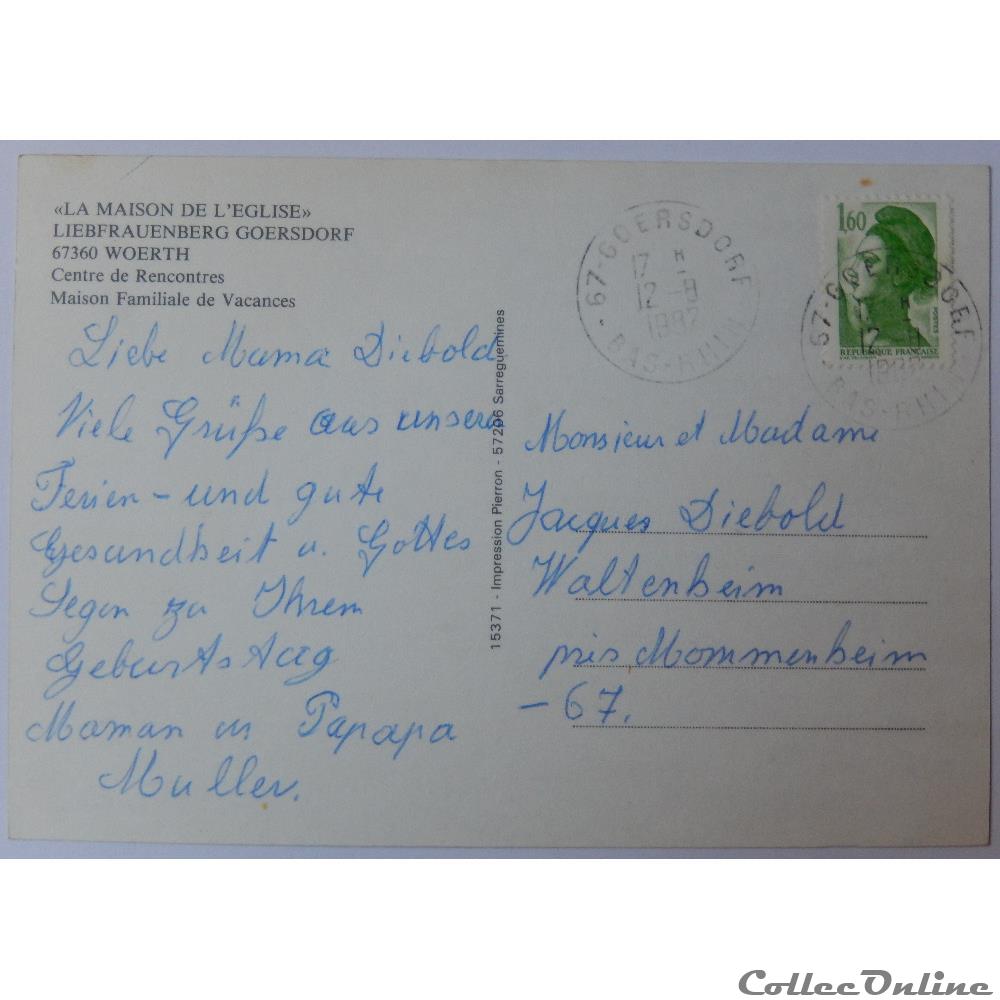 «LA MAISON DE L'EGLISE»
LIEBFRAUENBERG GOERSDORF
67360 WOERTH
Centre de Rencontres
Maison Familiale de Vacances
Liebe Mama Diebold
Viele Grüße aus unsern
Ferien - und gute
Gesundheit u. Gottes
Segen zu Ihrem
Geburtstag
Maman u Papapa
Muller.
15371 - Impression Pierron - 57206 Sarreguemines
67-GOERSDORF
17 H
12 -8
1982
BAS-RHIN
1,60
REPUBLIQUE FRANÇAISE
67-GOERSDORF
BAS-RHIN
Monsieur et Madame
Jacques Diebold
Waltenheim
près Mommenheim
- 67.
CollecOnline